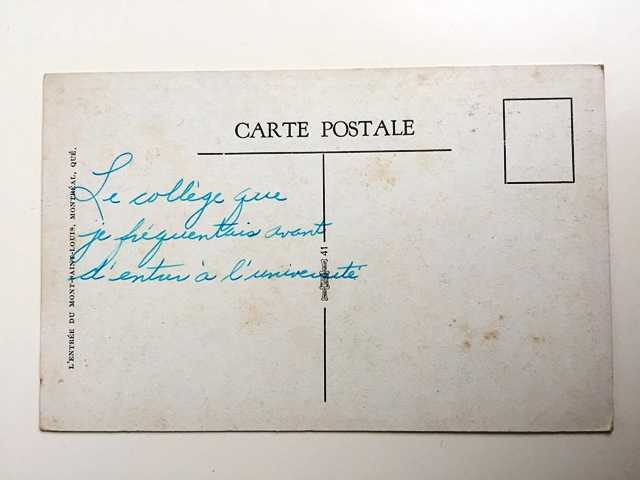 CARTE POSTALE
Le collège que
je fréquentais avant
d'entrer à l'université
41
L'ENTRÉE DU MONT-SAINT-LOUIS, MONTRÉAL, QUÉ.